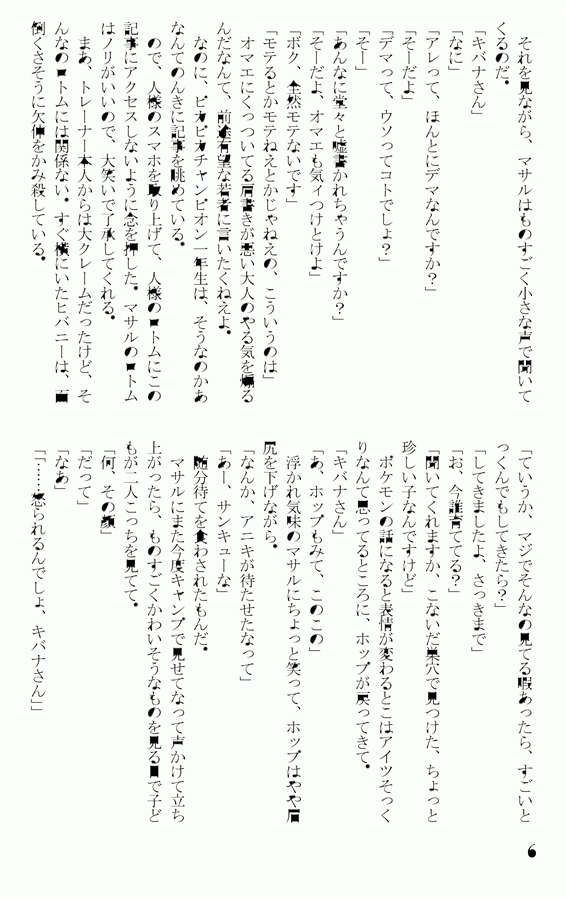 それを見ながら、マサルはものすごく小さな声で聞いて
くるのだ。
「キバナさん」
「なに」
「アレって、ほんとにデマなんですか?」
「そーだよ」
「デマって、ウソってコトでしょ?」
「そー」
「あんなに堂々と嘘書かれちゃうんですか?」
「そーだよ、オマエも気ィつけとけよ」
「ボク、全然モテないです」
「モテるとかモテねえとかじゃねえの、こういうのは」
オマエにくっついてる肩書きが悪い大人のやる気を煽る
んだなんて、前途有望な若者に言いたくねえよ。
なのに、ピカピカチャンピオン一年生は、そうなのかあ
なんてのんきに記事を眺めている。
ので、人様のスマホを取り上げて、人様のロトムにこの
記事にアクセスしないように念を押した。マサルのロトム
はノリがいいので、大笑いで了承してくれる。
まあ、トレーナー本人からは大クレームだったけど、そ
んなのロトムには関係ない。すぐ横にいたヒバニーは、面
倒くさそうに欠伸をかみ殺している。
「ていうか、マジでそんなの見てる暇あったら、すごいと
っくんでもしてきたら?」
「してきましたよ、さっきまで」
「お、今誰育ててる?」
「聞いてくれますか、こないだ巣穴で見つけた、ちょっと
珍しい子なんですけど」
ポケモンの話になると表情が変わるとこはアイツそっく
りなんて思ってるところに、ホップが戻ってきて。
「キバナさん」
「あ、ホップもみて、このこの」
浮かれ気味のマサルにちょっと笑って、ホップはやや眉
尻を下げながら。
「なんか、アニキが待たせたなって」
「あー、サンキューな」
随分待てを食わされたもんだ。
マサルにまた今度キャンプで見せてなって声かけて立ち
上がったら、ものすごくかわいそうなものを見る目で子ど
もが二人こっちを見てて。
「何、その顔」
「だって」
「なあ」
「「……怒られるんでしょ、キバナさん」」
6